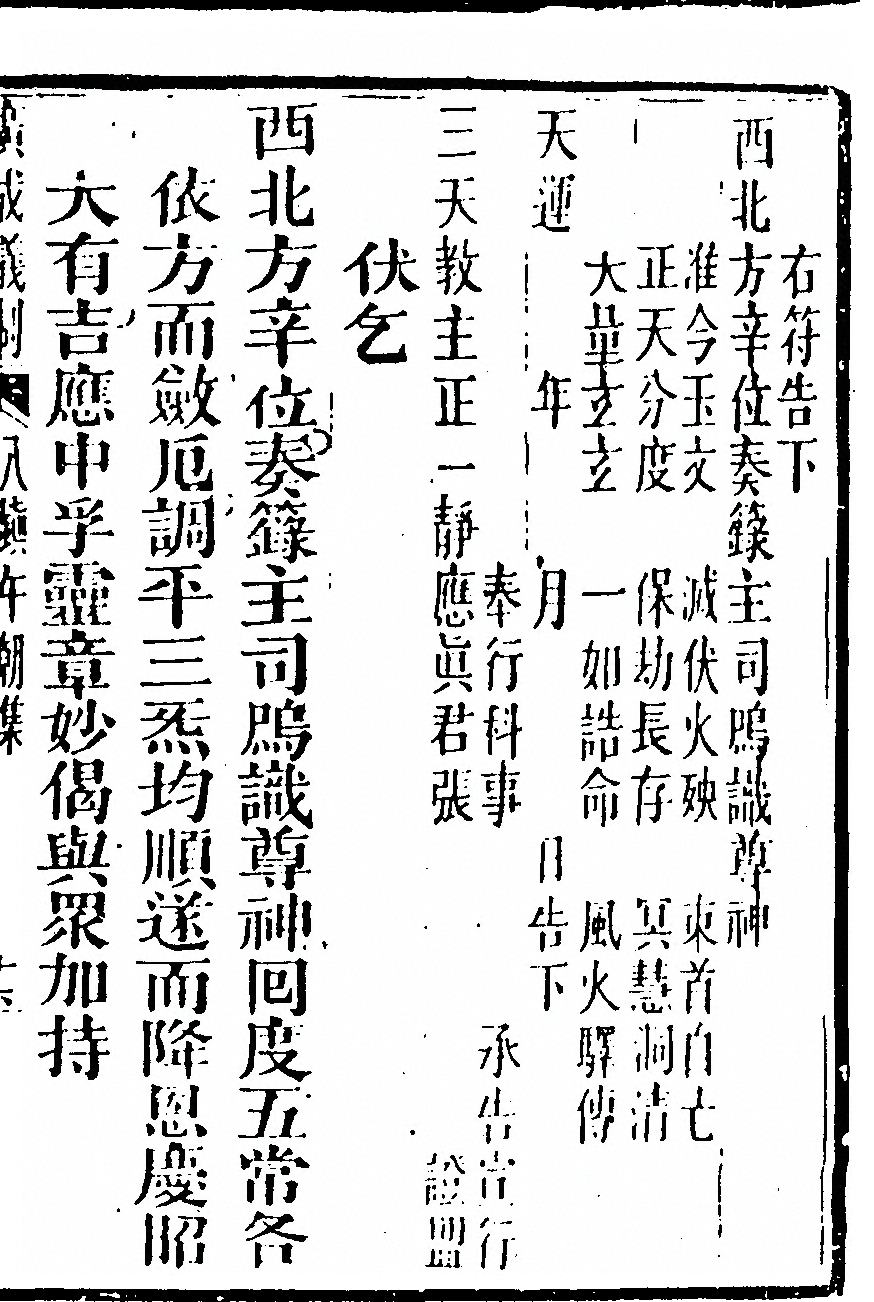 右符告下
西北方辛位奏籙主司鴅識尊神
准今玉文　滅伏火殃　東首自亡
正天分度　保劫長存　冥慧洞清
大量玄玄　一如誥命　風火驛傳
天運　年　月　日告下
奉行科事　承告宣行
三天教主正一靜應眞君張　證盟
伏乞
西北方辛位奏籙主司鴅識尊神回度五常各
依方而斂厄調平三炁均順遂而降恩慶昭
大有吉應中孚靈章妙偈與眾加持
廣成儀制　八鎮午潮集